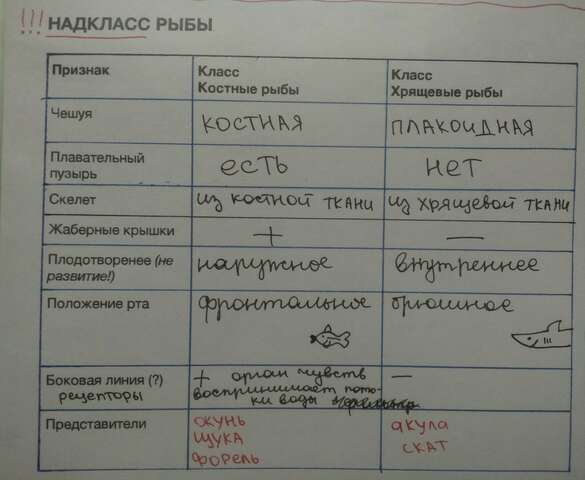 !!! НАДКЛАСС РЫБЫ
Признак
Класс
Костные рыбы
Класс
Хрящевые рыбы
Чешуя
КОСТНАЯ
ПЛАКОИДНАЯ
Плавательный
пузырь
есть
нет
Скелет
из костной ткани
из хрящевой ткани
Жаберные крышки
+
—
Плодотворенее (не
развитие!)
наружное
внутреннее
Положение рта
фронтальное
брюшное
Боковая линия (?)
рецепторы
+ орган чувств
воспринимает пото-
ки воды
—
Представители
окунь
щука
форель
акула
скат